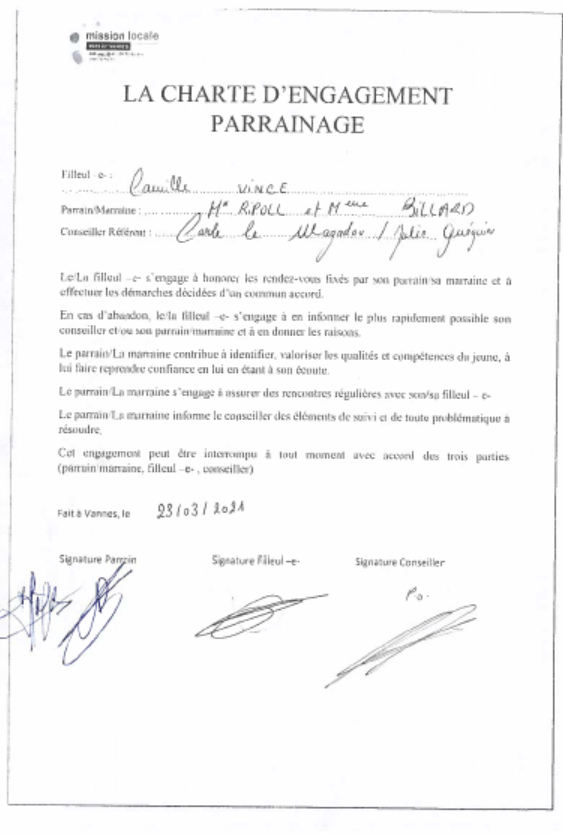 mission locale
LA CHARTE D'ENGAGEMENT
PARRAINAGE
Filleul -e- :
Camille VINCE
Parrain/Marraine : Mr RIPOLL et Mme BILLARD
Conseiller Référent : Carle le Magadou / Julie Guéguin
Le/La filleul –e- s'engage à honorer les rendez-vous fixés par son parrain/sa marraine et à
effectuer les démarches décidées d'un commun accord.
En cas d'abandon, le/la filleul –e- s'engage à en informer le plus rapidement possible son
conseiller et/ou son parrain/marraine et à en donner les raisons.
Le parrain/La marraine contribue à identifier, valoriser les qualités et compétences du jeune, à
lui faire reprendre confiance en lui en étant à son écoute.
Le parrain/La marraine s'engage à assurer des rencontres régulières avec son/sa filleul – e-
Le parrain/La marraine informe le conseiller des éléments de suivi et de toute problématique à
résoudre.
Cet engagement peut être interrompu à tout moment avec accord des trois parties
(parrain/marraine, filleul –e- , conseiller)
Fait à Vannes, le 23/03/2021
Signature Parrain Signature Filleul –e- Signature Conseiller
Po.